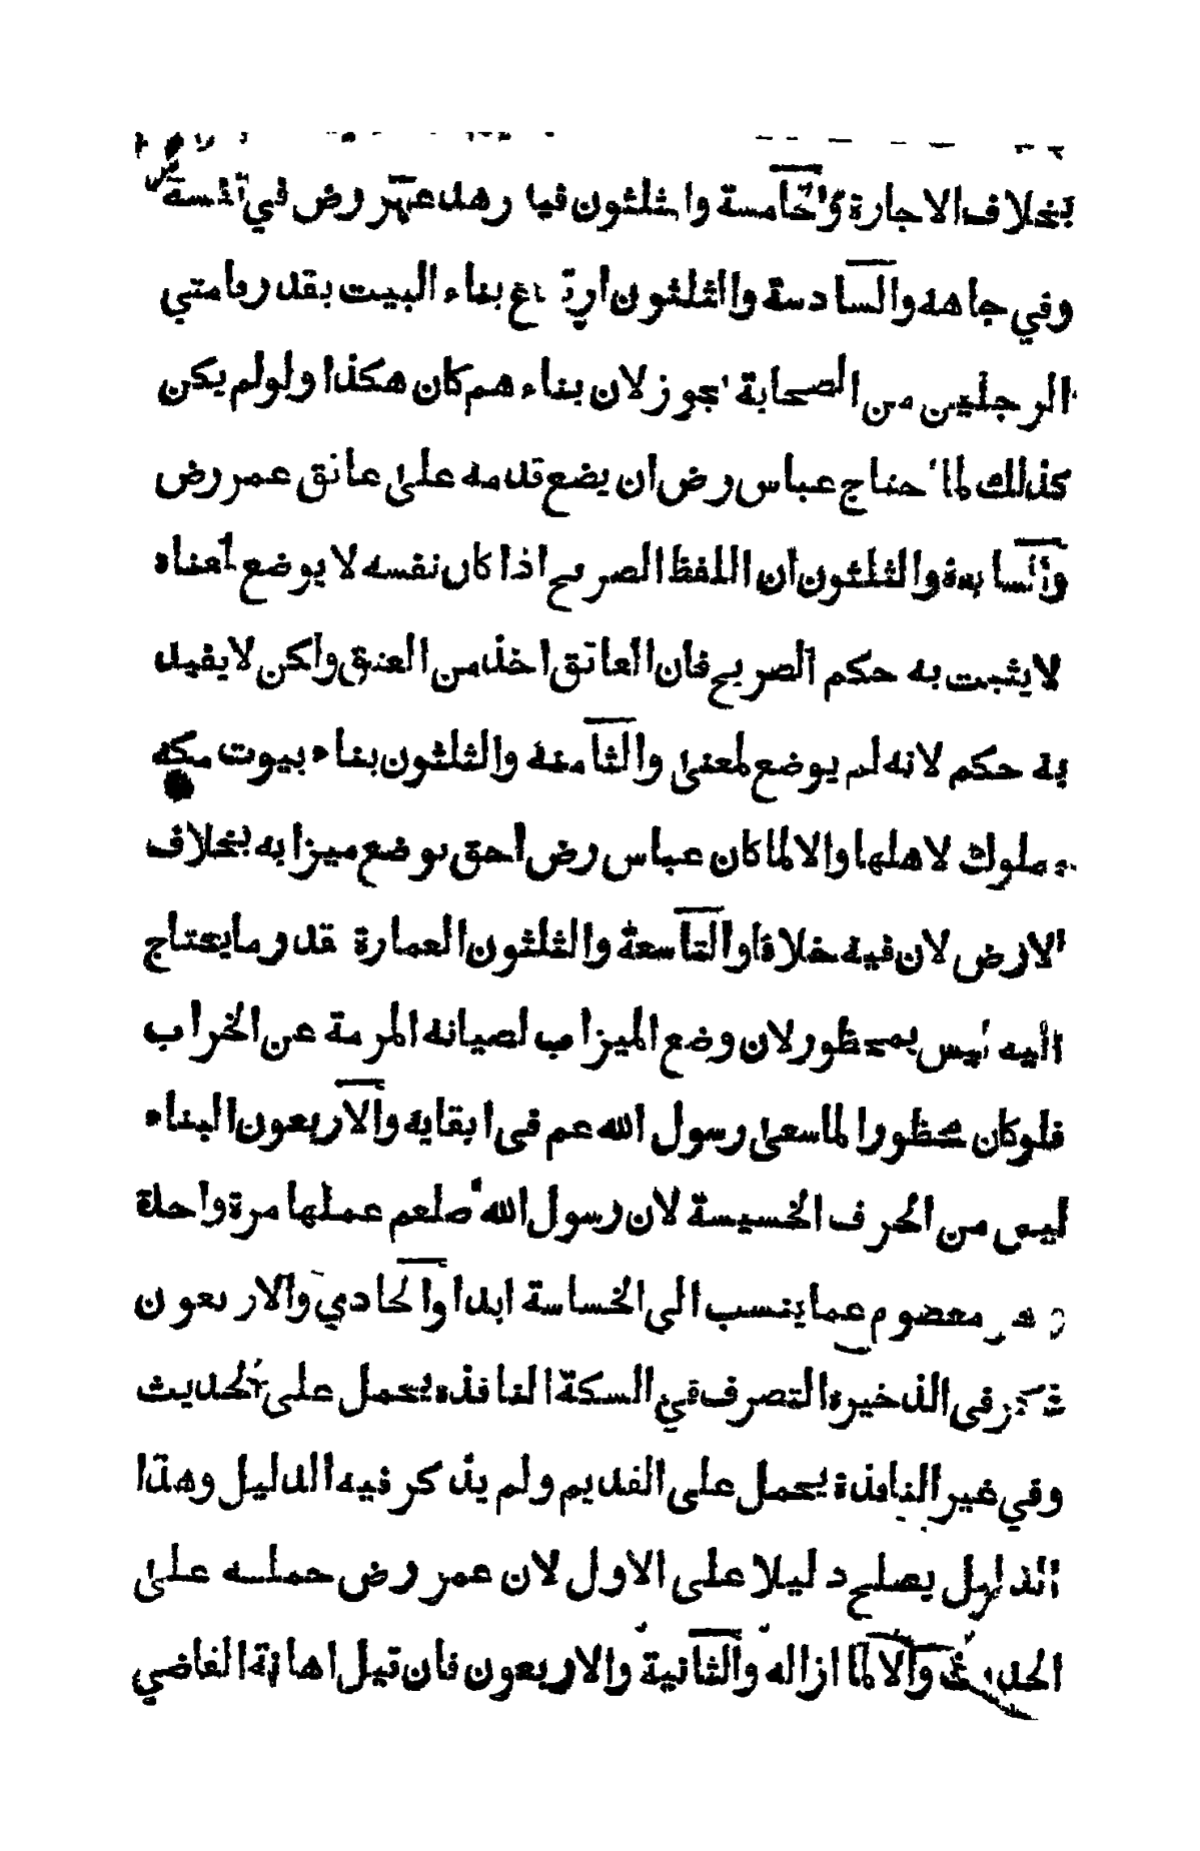 بخلاف الاجارة والخامسة والثلثون فيا رهد عمر رض في نفسه
وفي جاهه والسادسة والثلثون ارتفاع بناء البيت بقدر قامتي
الرجلين من الصحابة يجوز لان بناء هم كان هكذا ولو لم يكن
كذلك لما احتاج عباس رض ان يضع قدمه على عاتق عمر رض
والسابعة والثلثون ان اللفظ الصريح اذا كان نفسه لا يوضع لمعناه
لا يثبت به حكم الصريح فان العاتق اخذ من العتق ولكن لا يفيد
به حكم لانه لم يوضع لمعنى والثامنة والثلثون بناء بيوت مكة
مملوك لاهلها والا لما كان عباس رض احق بوضع ميزابه بخلاف
الارض لان فيه خلافا والتاسعة والثلثون العمارة قدر ما يحتاج
اليه ليس بمحظور لان وضع الميزاب لصيانة المرمة عن الخراب
فلو كان محظورا لما سعى رسول الله عم في ابقايه والاربعون البناء
ليس من الحرف الخسيسة لان رسول الله صلعم عملها مرة واحدة
وهو معصوم عما ينسب الى الخساسة ابدا والحادي والاربعون
ذكر في الذخيرة التصرف في السكة النافذة يحمل على الحديث
وفي غير النافذة يحمل على القديم ولم يذكر فيه الدليل وهذا
الدليل يصلح دليلا على الاول لان عمر رض حمله على
الحديث والا لما ازاله والثانية والاربعون فان قيل اهانة القاضي